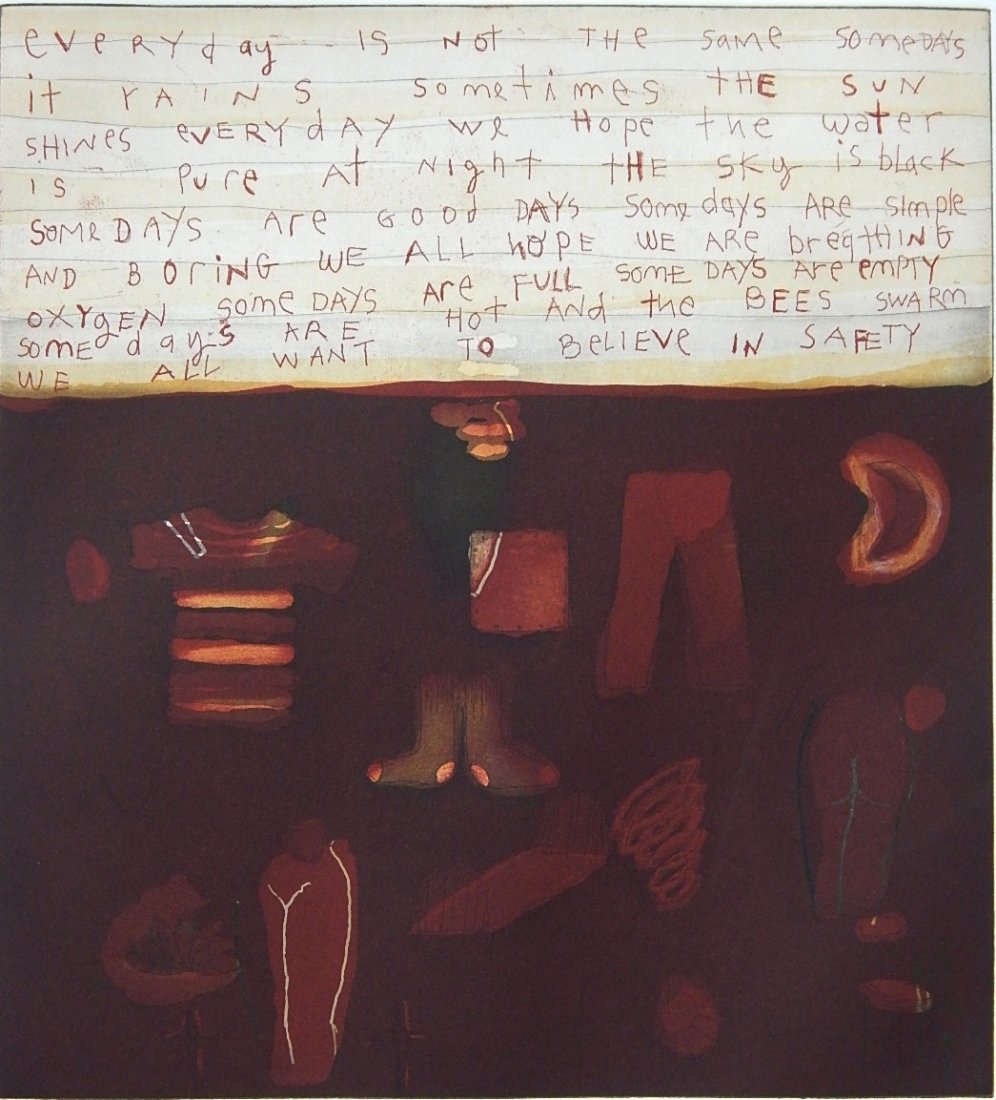 eVeRYday IS Not THe same SOmeDAYS
it rAiNS Sometimes THE SUN
SHiNes eVERYdAY We Hope the water
is Pure At Night tHE Sky is black
SOMeDAYS Are GOod DAYS Some days ARe simple
AND BOriNG WE ALL hOPE WE ARe breathING
OXYgEN some DAYS Are FULL SOME DAYS Are emPTY
SOmE days ARE HOT AND the BEES SWARM
WE ALL WANT TO BeLIEVe IN SAFETY